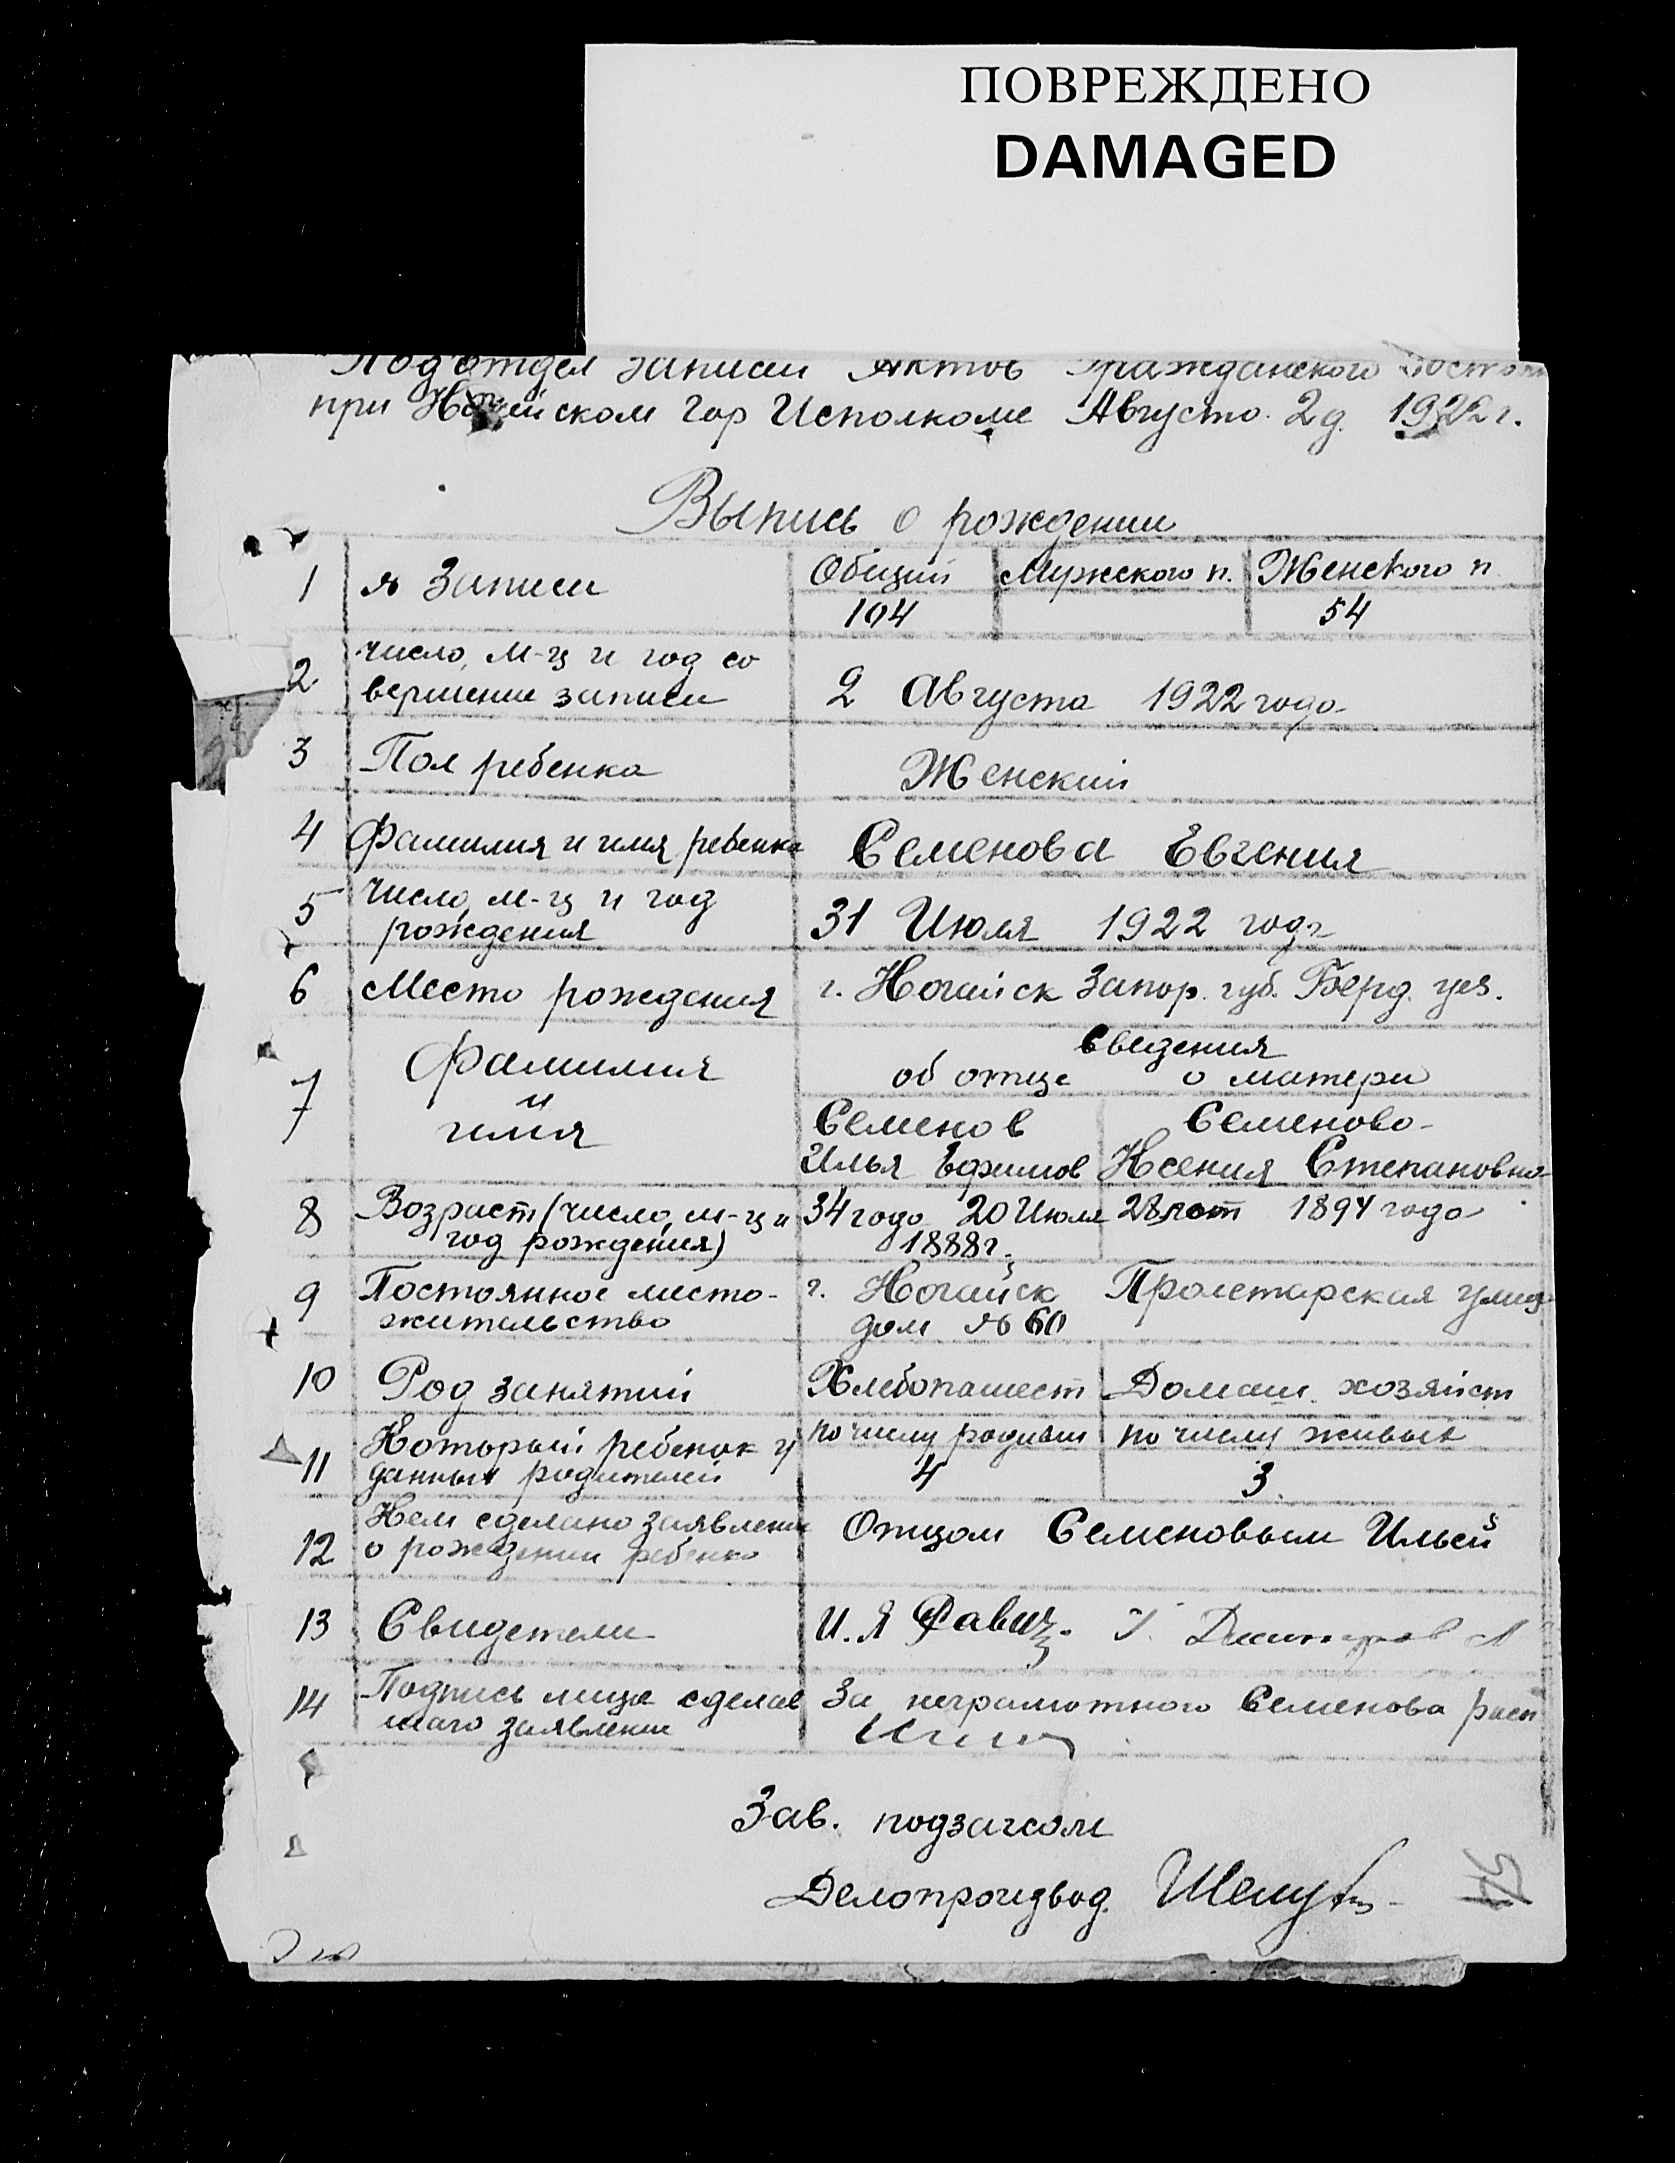 ПОВРЕЖДЕНО
DAMAGED
Подотдел Записи Актов Гражданского
при Ногайском Гор Исполкоме Августа 2 д. 1922 г.
Выпись о рождении
1 № Записи Общий Мужского п. Женского п.
104 54
2 число, м-ц и год со
вершение записи 2 Августа 1922 года
3 Пол ребенка Женский
4 Фамилия и имя ребенка Семенова Евгения
5 число, м-ц и год
рождения 31 Июля 1922 года
6 Место рождения г. Ногайск Запор. губ. Берд. уез.
7 Фамилия
и
имя
Сведения
об отце о матери
Семенов Семенова
Илья Ефимов Ксения Степановна
8 Возраст (число, м-ц и
год рождения) 34 года 20 Июля 28 лет 1894 года
1888 г.
9 Постоянное место-
жительство г. Ногайск Пролетарская улиц
дом № 60
10 Род занятий Хлебопашест Домаш. хозяйст
11 Который ребенок у
данных родителей по числу родивш по числу живых
4 3.
12 Кем сделано заявление
о рождении ребенка Отцом Семеновым Ильей
13 Свидетели И. Я
14 Подпись лица сделав
шаго заявление За неграмотного Семенова расп
Зав. подзагсом
Делопроизвод.